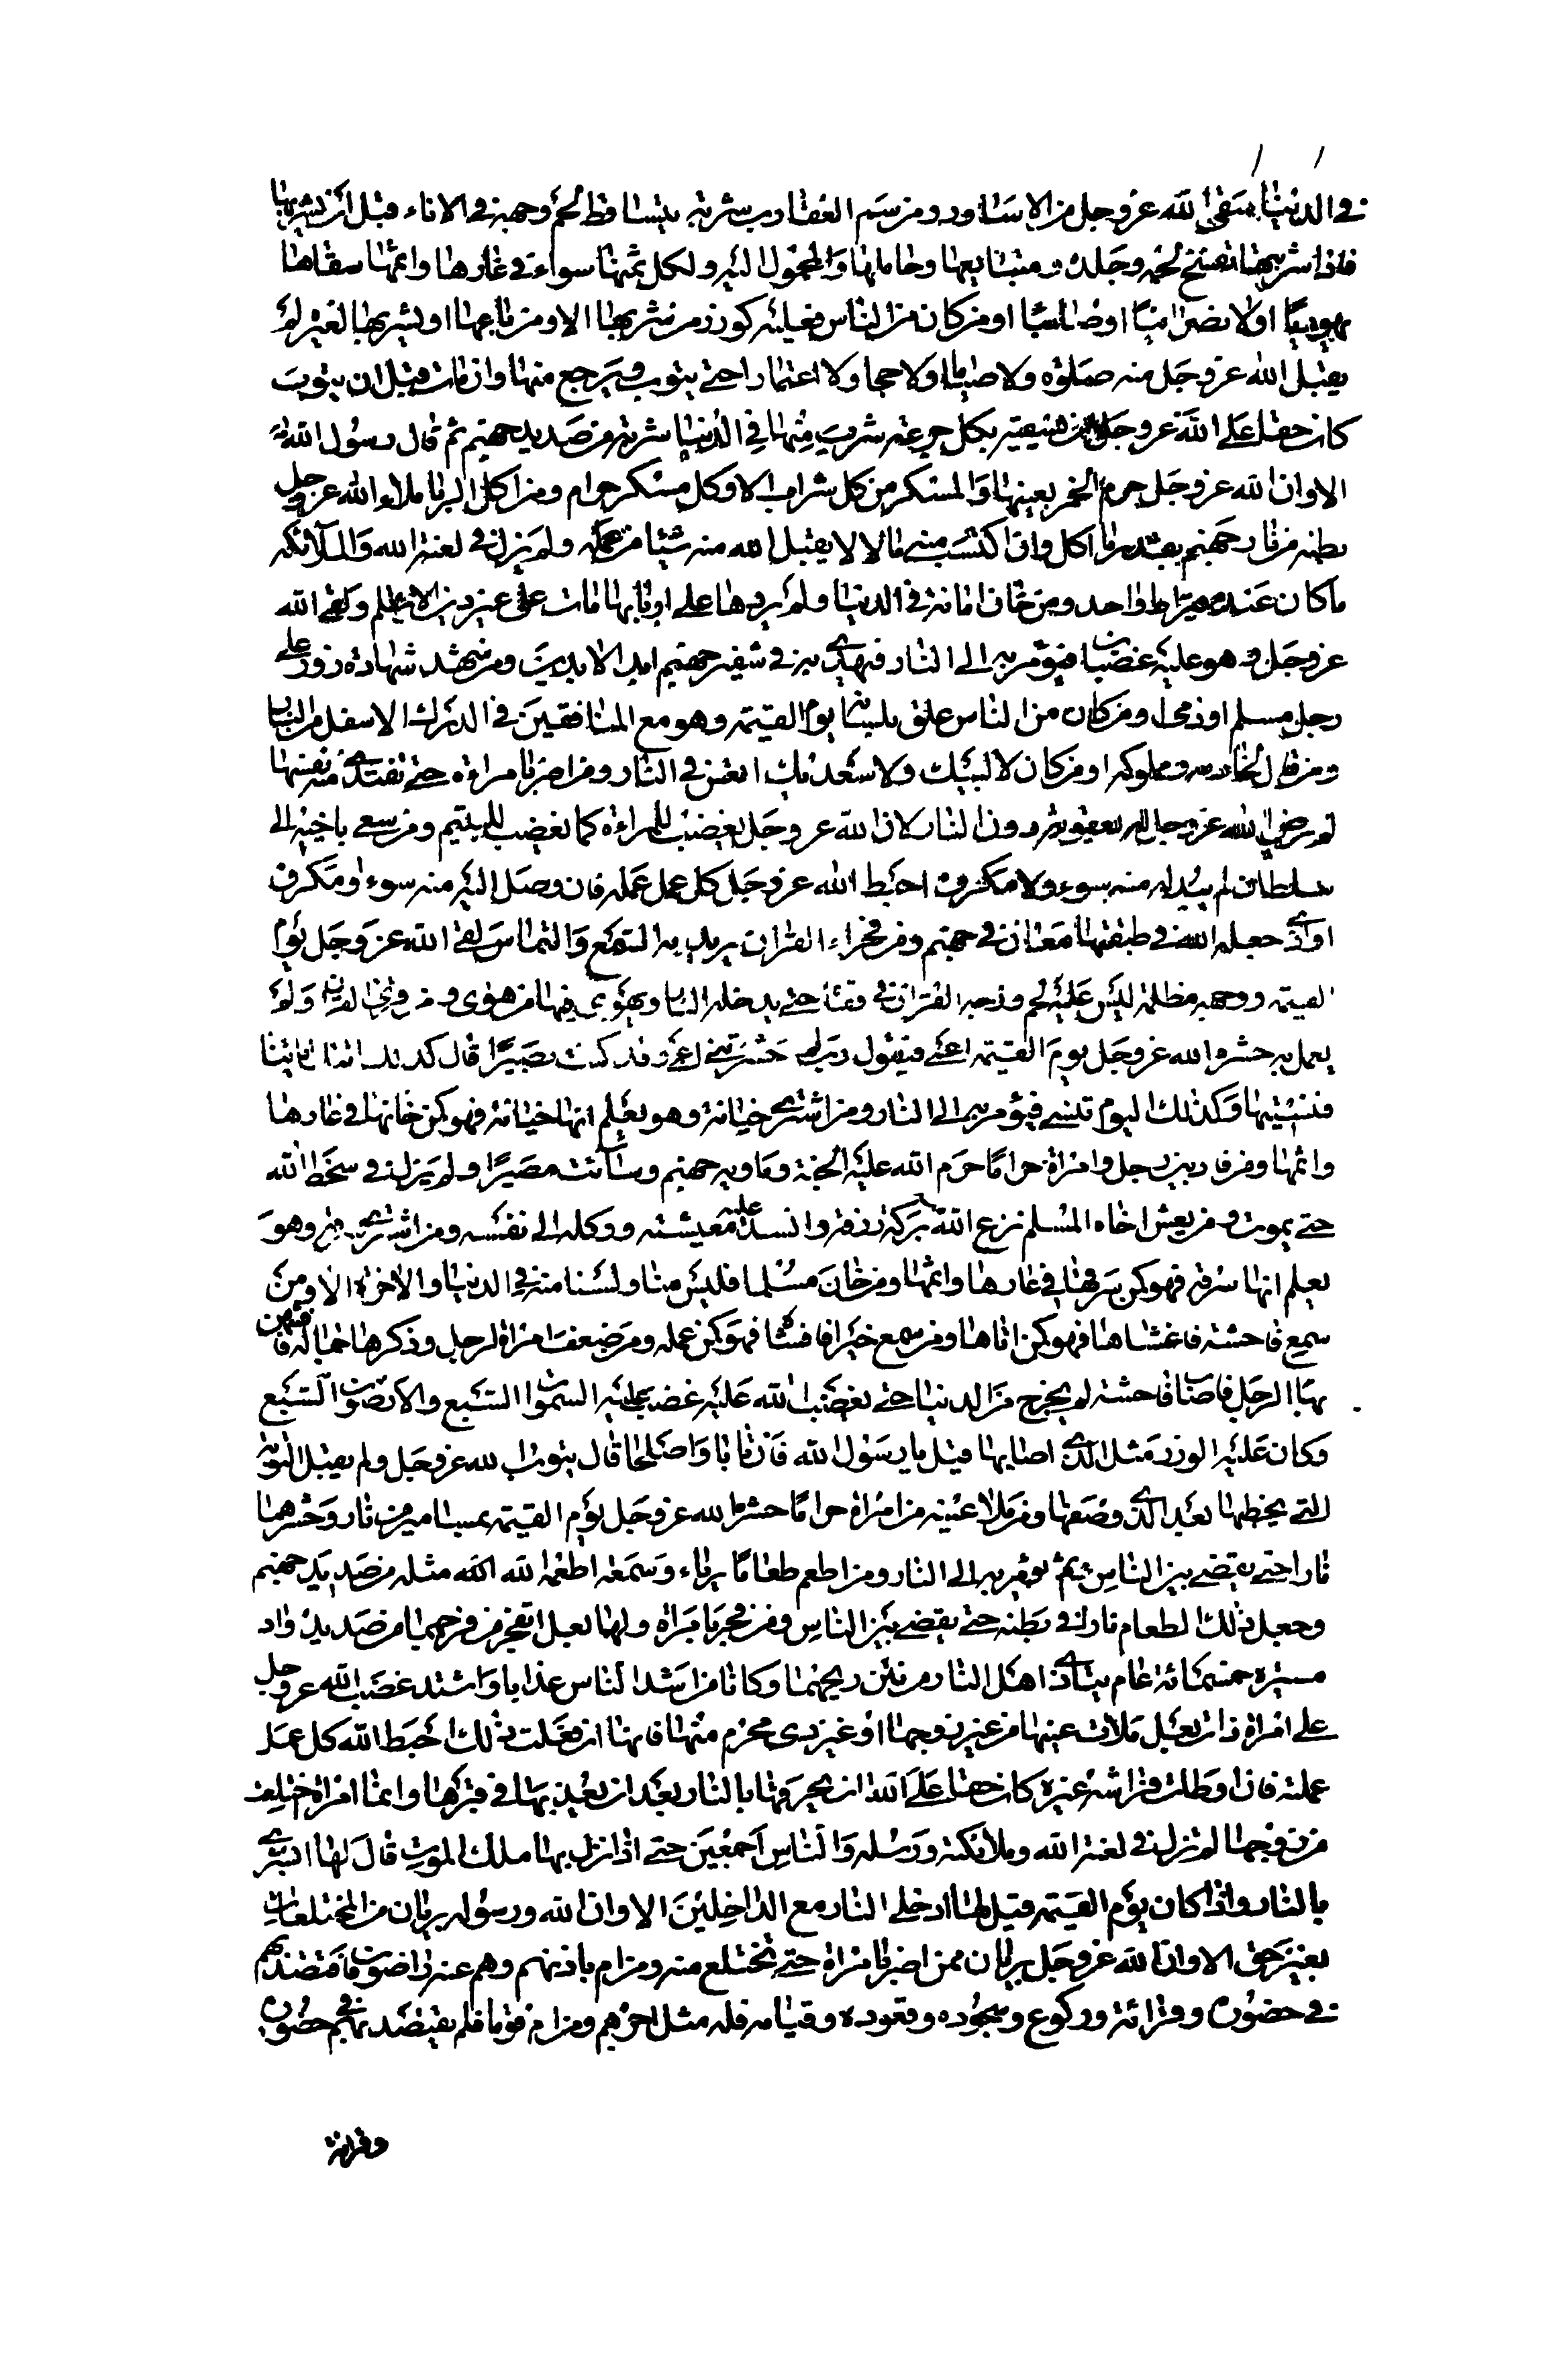 في الدنيا سقى الله عز وجل من الاساور ومن سم العقارب شربة يتساقط لحم وجهه في الاناء قبل ان يشربها
فاذا شربها تفسخ لحمه وجلده بايعها وحاملها والمحمول اليه واكل ثمنها سواء في عارها واثمها سقاها
يهوديا او نصرانيا او صابئيا او من كان من الناس فعليه كوزر من شربها الا ومن باعها او شربها لغيره لم
يقبل الله عز وجل منه صلوة ولا صياما ولا حجا ولا اعتمارا حتى يتوب ويرجع منها وان مات قبل ان يتوب
كان حقا على الله عز وجل ان يسقيه بكل جرعة شرب منها في الدنيا شربة من صديد جهنم ثم قال رسول الله
الا وان الله عز وجل حرم الخمر بعينها والمسكر من كل شراب الا وكل مسكر حرام ومن اكل الربا ملاء الله عز وجل
بطنه من نار جهنم بقدر ما اكل وان اكتسب منه مالا لا يقبل الله منه شيئا من عمله ولم يزل في لعنة الله والملآئكة
ما كان عنده قيراط واحد ومن خان امانة في الدنيا ولم يردها على اربابها مات على غير دين الاسلم ولقى الله
عز وجل وهو عليه غضبان فيؤمر به الى النار فيهوى به في شفير جهنم ابد الابدين ومن شهد شهادة زور على
رجل مسلم او ذمى او من كان من الناس علق بلسانه يوم القيمة وهو مع المنافقين في الدرك الاسفل من النار
ومن قال لخادمه ومملوكه او من كان لا لبيك ولا سعديك انغس في النار ومن اضر بامراءة حتى تفتدى منه نفسها
لم يرض الله عز وجل له بعقوبة دون النار لان الله عز وجل يغضب للمراءة كما يغضب لليتيم ومن سعى باخيه الى
سلطان لم يبد له منه سوء ولا مكروه احبط الله عز وجل كل عمل عمله فان وصل اليه منه سوء او مكروه
او اذى جعله الله في طبقة مع هامان في جهنم ومن قراء القران يريد به السمعة والتماس لقى الله عز وجل يوم
القيمة ووجهه مظلمة ليس عليه لحم وزجه القران في قفاه حتى يدخله النار ويهوى فيها من هوى ومن قراء القران ولم
يعمل به حشره الله عز وجل يوم القيمة اعمى فيقول رب لم حشرتنى اعمى وقد كنت بصيرا قال كذلك اتتك اياتنا
فنسيتها وكذلك اليوم تنسى فيؤمر به الى النار ومن اشترى خيانة وهو يعلم انها خيانة فهو كمن خانها في عارها
واثمها ومن قاد بين رجل وامراة حراما حرم الله عليه الجنة وماويه جهنم وسآئت مصيرا ولم يزل في سخط الله
حتى يموت ومن يغش اخاه المسلم نزع الله بركة رزقه وافسد عليه معيشته ووكله الى نفسه ومن اشترى سرقة وهو
يعلم انها سرقة فهو كمن سرقها في عارها واثمها ومن خان مسلما فليس منا ولسنا منه في الدنيا والاخرة الا ومن
سمع فاحشة فافشاها فهو كمن اتاها ومن سمع خيرا فافشا فهو كمن عمله ومن وصف امراة لرجل وذكرها جمالها له فافتتن
بها الرجل فاصاب فاحشة لم يخرج من الدنيا حتى يغضب الله عليه غضب عليه السموات السبع والارضون السبع
وكان عليه الوزر مثل الذى اصابها قيل يا رسول الله فان تابا واصلحا قال يتوب الله عز وجل ولم يقبل التوبة
التى يخطها بعد الذى وصفها ومن ملا عينه من امراة حراما حشره الله عز وجل يوم القيمة بمسامير من نار وحشرهما
نارا حتى يقضى بين الناس ثم يؤمر به الى النار ومن اطعم طعاما رياء وسمعة اطعمه الله مثله من صديد جهنم
وجعل ذلك الطعام نارا في بطنه حتى يقضى بين الناس ومن فجر بامراة ولها بعل انفجر من فرجهما من صديد واد
مسيرة خمسمائة عام يتاذى اهل النار من نتن ريحهما وكانا من اشد الناس عذابا واشتد غضب الله عز وجل
على امراة ذات بعل ملات عينها من غير زوجها او غير ذى محرم منها فانها ان فعلت ذلك احبط الله كل عمل
عملته فان اوطات فراشه غيره كان حقا على الله ان يحرقها بالنار بعد ان يعذبها في قبرها وايما امراة اختلعت
من زوجها لم تزل في لعنة الله وملائكته ورسله والناس اجمعين حتى اذا نزل بها ملك الموت قال لها ابشرى
بالنار واذا كان يوم القيمة قيل لها ادخلى النار مع الداخلين الا وان الله ورسوله بريان من المختلعات
بغير حق الا وان الله عز وجل بريان ممن اضر بامراة حتى تختلع منه ومن ام باذنهم وهم عنه راضون فاقتصدهم
في حضوره وقرائته وركوعه وسجوده وقعوده وقيامه فله مثل اجرهم ومن ام قوما فلم يقتصد بهم في حضوره
وقرائته